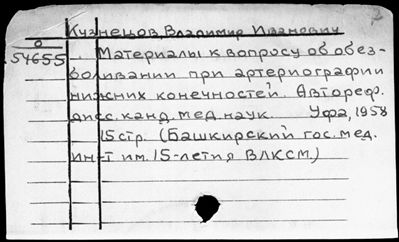 Кузнецов Владимир Иванович
0
54655
Материалы к вопросу об обез-
боливании при артериографии
нижних конечностей. Автореф.
дисс. канд. мед. наук. Уфа, 1958
15 стр. (Башкирский гос. мед.
ин-т им. 15-летия ВЛКСМ.)